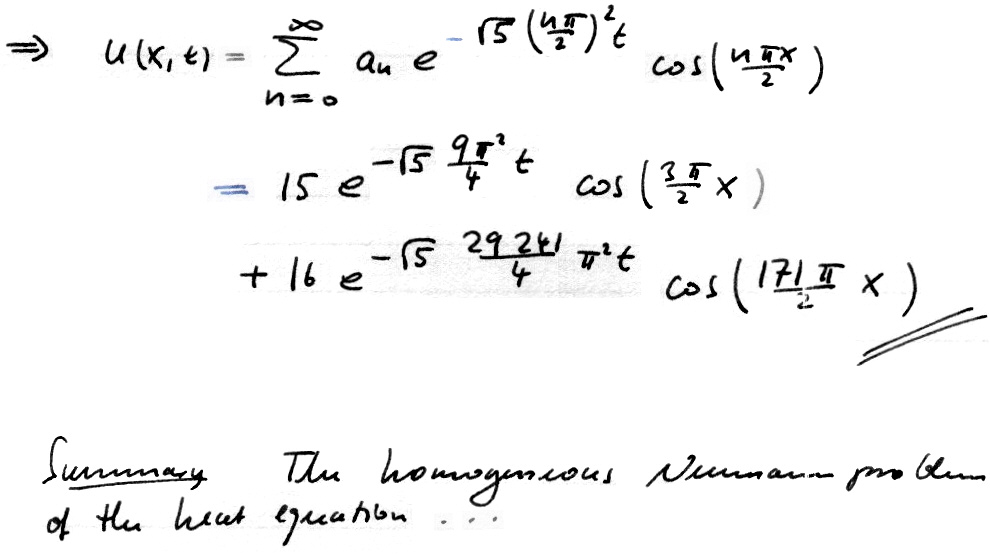 ⇒ u(x,t) = ∑_{n=0}^{∞} aₙ e^{-√5 (nπ/2)² t} cos(nπx/2)
= 15 e^{-√5 9π²/4 t} cos(3π/2 x)
+ 16 e^{-√5 29 241/4 π² t} cos(171π/2 x)
Summary The homogeneous Neumann problem
of the heat equation ...